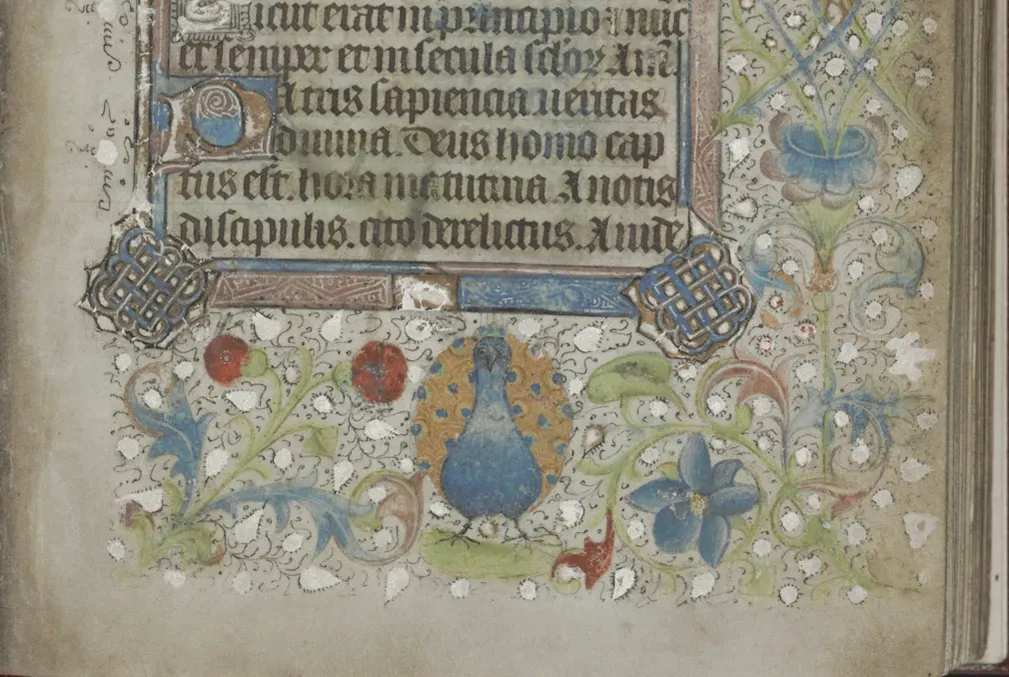 Sicut erat in principio ⁊ nūc
et semper et in secula sclōꝝ Am̄
Patris sapiencia ueritas
diuina. Deus homo cap
tus est. hora matutina A notis
discipulis. cito derelictus. A iude